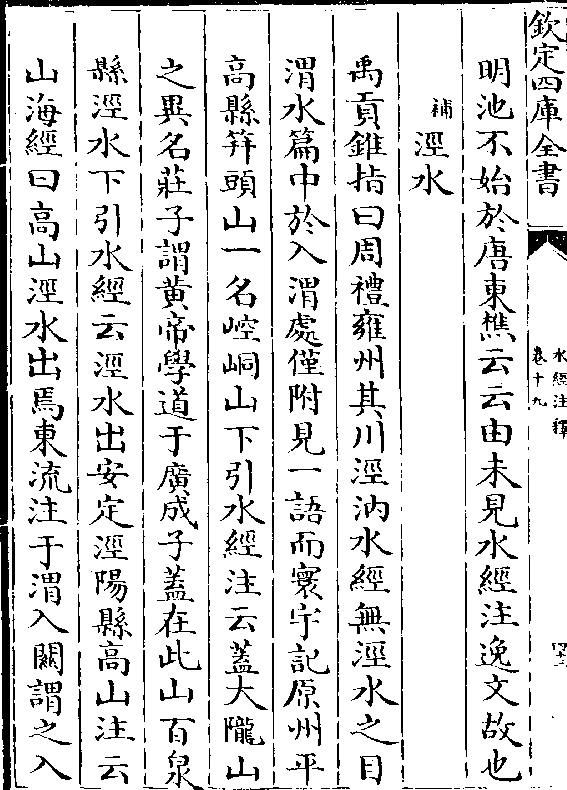 欽定四庫全書
水經注釋
卷十九
明池不始於唐東樵云云由未見水經注逸文故也
補涇水
禹貢錐指曰周禮雍州其川涇汭水經無涇水之目
渭水篇中於入渭處僅附見一語而寰宇記原州平
高縣笄頭山一名崆峒山下引水經注云蓋大隴山
之異名莊子謂黃帝學道于廣成子蓋在此山百泉
縣涇水下引水經云涇水出安定涇陽縣高山注云
山海經曰高山涇水出焉東流注于渭入關謂之入